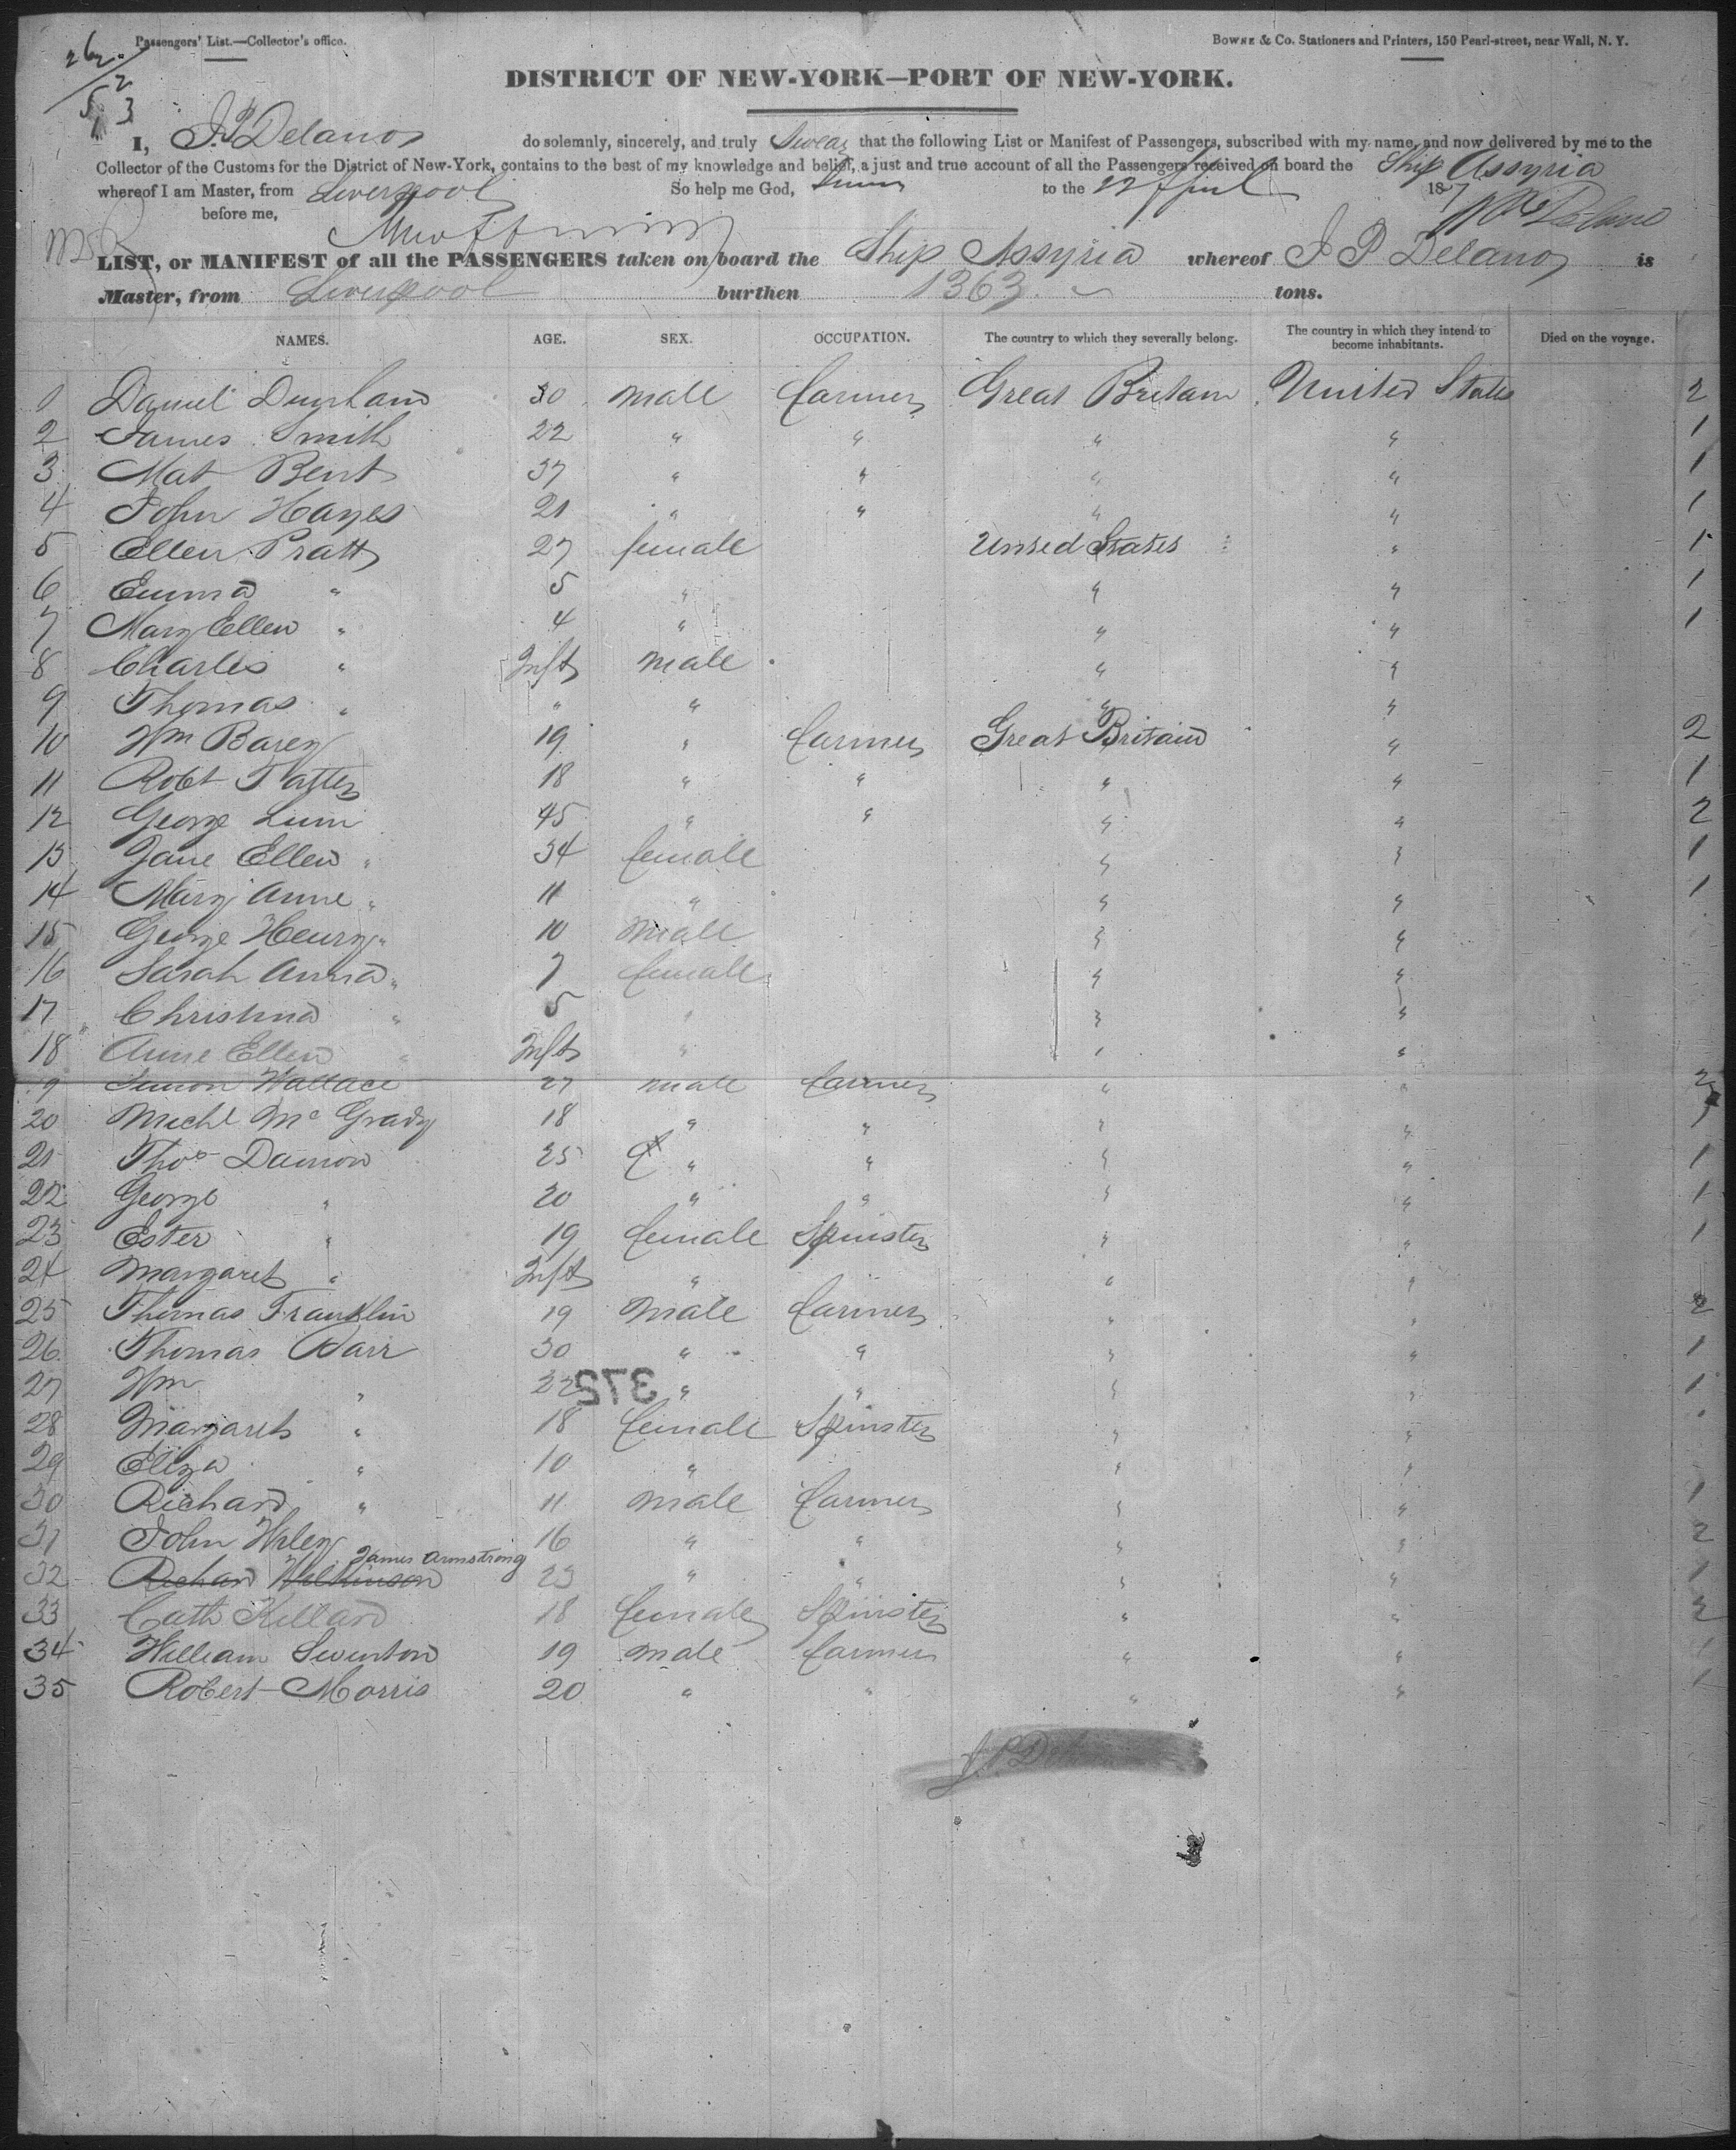 Passengers' List.—Collector's office.
BOWNE & Co. Stationers and Printers, 150 Pearl-street, near Wall, N. Y.
DISTRICT OF NEW-YORK—PORT OF NEW-YORK.
I, J. P. Delano do solemnly, sincerely, and truly Swear that the following List or Manifest of Passengers, subscribed with my name, and now delivered by me to the
Collector of the Customs for the District of New-York, contains to the best of my knowledge and belief, a just and true account of all the Passengers received on board the Ship Assyria
whereof I am Master, from Liverpool So help me God, to the 22 April 18
before me,
LIST, or MANIFEST of all the PASSENGERS taken on board the Ship Assyria whereof J P Delano is
Master, from Liverpool burthen 1363 tons.
NAMES. AGE. SEX. OCCUPATION. The country to which they severally belong. The country in which they intend to become inhabitants. Died on the voyage.
1 Daniel Dunham 30 male farmer Great Britain United States 2
2 James Smith 22 " " " " 1
3 Mat Bent 37 " " " " 1
4 John Hayes 21 " " " " 1
5 Ellen Pratt 27 female United States " 1
6 Emma " 5 " " " 1
7 Mary Ellen " 4 " " " 1
8 Charles " Inft male " "
9 Thomas " " " " "
10 Wm 19 " farmer Great Britain " 2
11 Robt 18 " " " " 1
12 George Lum 45 " " " " 2
13 Jane Ellen " 34 female " " 1
14 Mary Anne " 11 " " " 1
15 George Henry " 10 male " "
16 Sarah Anna " 7 female " "
17 Christina " 5 " " "
18 Anne Ellen " Inft " " "
19 Simon Wallace 27 male farmer " " 2
20 Michl McGrady 18 " " " "
21 Thos Damon 25 " " " " 1
22 George " 20 " " " " 1
23 Ester " 19 female Spinster " " 1
24 Margaret " Inft " " "
25 Thomas Franklin 19 male farmer " " 2
26 Thomas Barr 30 " " " " 1
27 Wm " 22 " " " " 1
372
28 Margaret " 18 female Spinster " "
29 Eliza " 10 " " "
30 Richard " 11 male farmer " " 1
31 John 16 " " " " 2
James Armstrong
32 Richard Wilkinson 23 " " " " 1
33 Cath Killard 18 female Spinster " " 2
34 William Swinton 19 male farmer " " 1
35 Robert Morris 20 " " " " 1
J. P. Delano